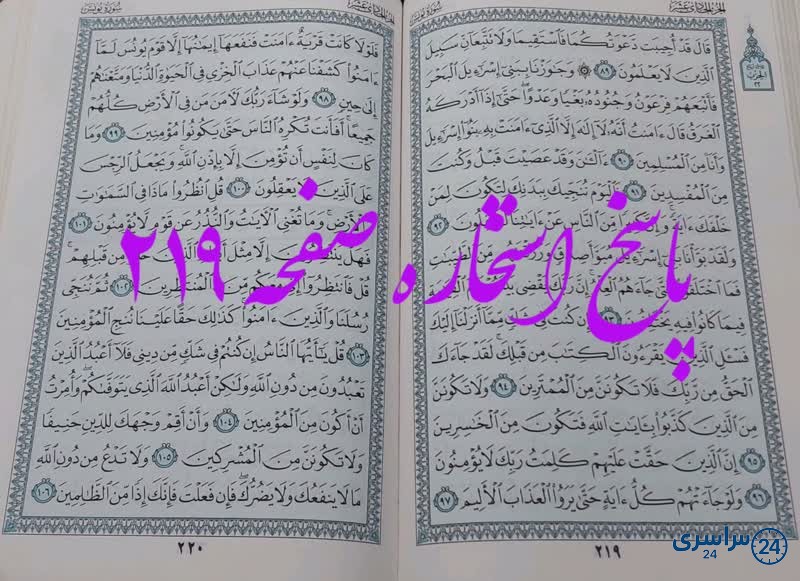 الجزء الحادي عشر
سورة يونس
قَالَ قَدْ أُجِيبَت دَّعْوَتُكُمَا فَاسْتَقِيمَا وَلَا تَتَّبِعَانِّ سَبِيلَ
الَّذِينَ لَا يَعْلَمُونَ ٨٩ وَجَاوَزْنَا بِبَنِي إِسْرَائِيلَ الْبَحْرَ
فَأَتْبَعَهُمْ فِرْعَوْنُ وَجُنُودُهُ بَغْيًا وَعَدْوًا حَتَّى إِذَا أَدْرَكَهُ
الْغَرَقُ قَالَ ءَامَنتُ أَنَّهُ لَا إِلَهَ إِلَّا الَّذِي ءَامَنَتْ بِهِ بَنُوا إِسْرَائِيلَ
وَأَنَا مِنَ الْمُسْلِمِينَ ٩٠ ءَالْـَٰنَ وَقَدْ عَصَيْتَ قَبْلُ وَكُنتَ
مِنَ الْمُفْسِدِينَ ٩١ فَالْيَوْمَ نُنَجِّيكَ بِبَدَنِكَ لِتَكُونَ لِمَنْ
خَلْفَكَ ءَايَةً وَإِنَّ كَثِيرًا مِّنَ النَّاسِ عَنْ ءَايَاتِنَا لَغَافِلُونَ ٩٢
وَلَقَدْ بَوَّأْنَا بَنِي إِسْرَائِيلَ مُبَوَّأَ صِدْقٍ وَرَزَقْنَاهُم مِّنَ الطَّيِّبَاتِ
فَمَا اخْتَلَفُوا حَتَّى جَاءَهُمُ الْعِلْمُ إِنَّ رَبَّكَ يَقْضِي بَيْنَهُمْ يَوْمَ الْقِيَامَةِ
فِيمَا كَانُوا فِيهِ يَخْتَلِفُونَ ٩٣ فَإِن كُنتَ فِي شَكٍّ مِّمَّا أَنزَلْنَا إِلَيْكَ
فَسْـَٔلِ الَّذِينَ يَقْرَءُونَ الْكِتَابَ مِن قَبْلِكَ لَقَدْ جَاءَكَ
الْحَقُّ مِن رَّبِّكَ فَلَا تَكُونَنَّ مِنَ الْمُمْتَرِينَ ٩٤ وَلَا تَكُونَنَّ
مِنَ الَّذِينَ كَذَّبُوا بِـَٔايَاتِ اللَّهِ فَتَكُونَ مِنَ الْخَاسِرِينَ
٩٥ إِنَّ الَّذِينَ حَقَّتْ عَلَيْهِمْ كَلِمَتُ رَبِّكَ لَا يُؤْمِنُونَ
٩٦ وَلَوْ جَاءَتْهُمْ كُلُّ ءَايَةٍ حَتَّى يَرَوُا الْعَذَابَ الْأَلِيمَ ٩٧
٢١٩
الجزء الحادي عشر
سورة يونس
فَلَوْلَا كَانَتْ قَرْيَةٌ ءَامَنَتْ فَنَفَعَهَا إِيمَانُهَا إِلَّا قَوْمَ يُونُسَ لَمَّا
ءَامَنُوا كَشَفْنَا عَنْهُمْ عَذَابَ الْخِزْيِ فِي الْحَيَاةِ الدُّنْيَا وَمَتَّعْنَاهُمْ
إِلَى حِينٍ ٩٨ وَلَوْ شَاءَ رَبُّكَ لَـَٔامَنَ مَن فِي الْأَرْضِ كُلُّهُمْ
جَمِيعًا أَفَأَنتَ تُكْرِهُ النَّاسَ حَتَّى يَكُونُوا مُؤْمِنِينَ ٩٩ وَمَا
كَانَ لِنَفْسٍ أَن تُؤْمِنَ إِلَّا بِإِذْنِ اللَّهِ وَيَجْعَلُ الرِّجْسَ
عَلَى الَّذِينَ لَا يَعْقِلُونَ ١٠٠ قُلِ انظُرُوا مَاذَا فِي السَّمَاوَاتِ
وَالْأَرْضِ وَمَا تُغْنِي الْآيَاتُ وَالنُّذُرُ عَن قَوْمٍ لَّا يُؤْمِنُونَ ١٠١
فَهَلْ يَنتَظِرُونَ إِلَّا مِثْلَ أَيَّامِ الَّذِينَ خَلَوْا مِن قَبْلِهِمْ
قُلْ فَانتَظِرُوا إِنِّي مَعَكُم مِّنَ الْمُنتَظِرِينَ ١٠٢ ثُمَّ نُنَجِّي
رُسُلَنَا وَالَّذِينَ ءَامَنُوا كَذَلِكَ حَقًّا عَلَيْنَا نُنجِ الْمُؤْمِنِينَ
١٠٣ قُلْ يَا أَيُّهَا النَّاسُ إِن كُنتُمْ فِي شَكٍّ مِّن دِينِي فَلَا أَعْبُدُ الَّذِينَ
تَعْبُدُونَ مِن دُونِ اللَّهِ وَلَكِنْ أَعْبُدُ اللَّهَ الَّذِي يَتَوَفَّاكُمْ وَأُمِرْتُ
أَنْ أَكُونَ مِنَ الْمُؤْمِنِينَ ١٠٤ وَأَنْ أَقِمْ وَجْهَكَ لِلدِّينِ حَنِيفًا
وَلَا تَكُونَنَّ مِنَ الْمُشْرِكِينَ ١٠٥ وَلَا تَدْعُ مِن دُونِ اللَّهِ
مَا لَا يَنفَعُكَ وَلَا يَضُرُّكَ فَإِن فَعَلْتَ فَإِنَّكَ إِذًا مِّنَ الظَّالِمِينَ ١٠٦
٢٢٠
پاسخ استخاره صفحه ۲۱۹
سراسری 24
24